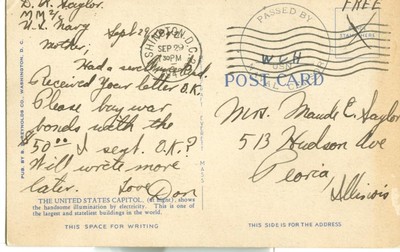 D. A. Saylor.
MM 2/c
U.S. Navy
Sept 28,
Mother,
Had a
Received Your letter O.K.
Please buy war
bonds with the
$50.00 I sent. O.K.?
Will write more
later. Love Don
THE UNITED STATES CAPITOL, (at night), shows
the handsome illumination by electricity. This is one of
the largest and stateliest buildings in the world.
THIS SPACE FOR WRITING
PUB. BY B. S. REYNOLDS CO., WASHINGTON, D. C.
D.C.
SEP 29
PM
PASSED BY
FREE
W.C.H
POST CARD
Mrs. Maude E. Saylor
513 Hudson Ave
Peoria
Illinois
THIS SIDE IS FOR THE ADDRESS